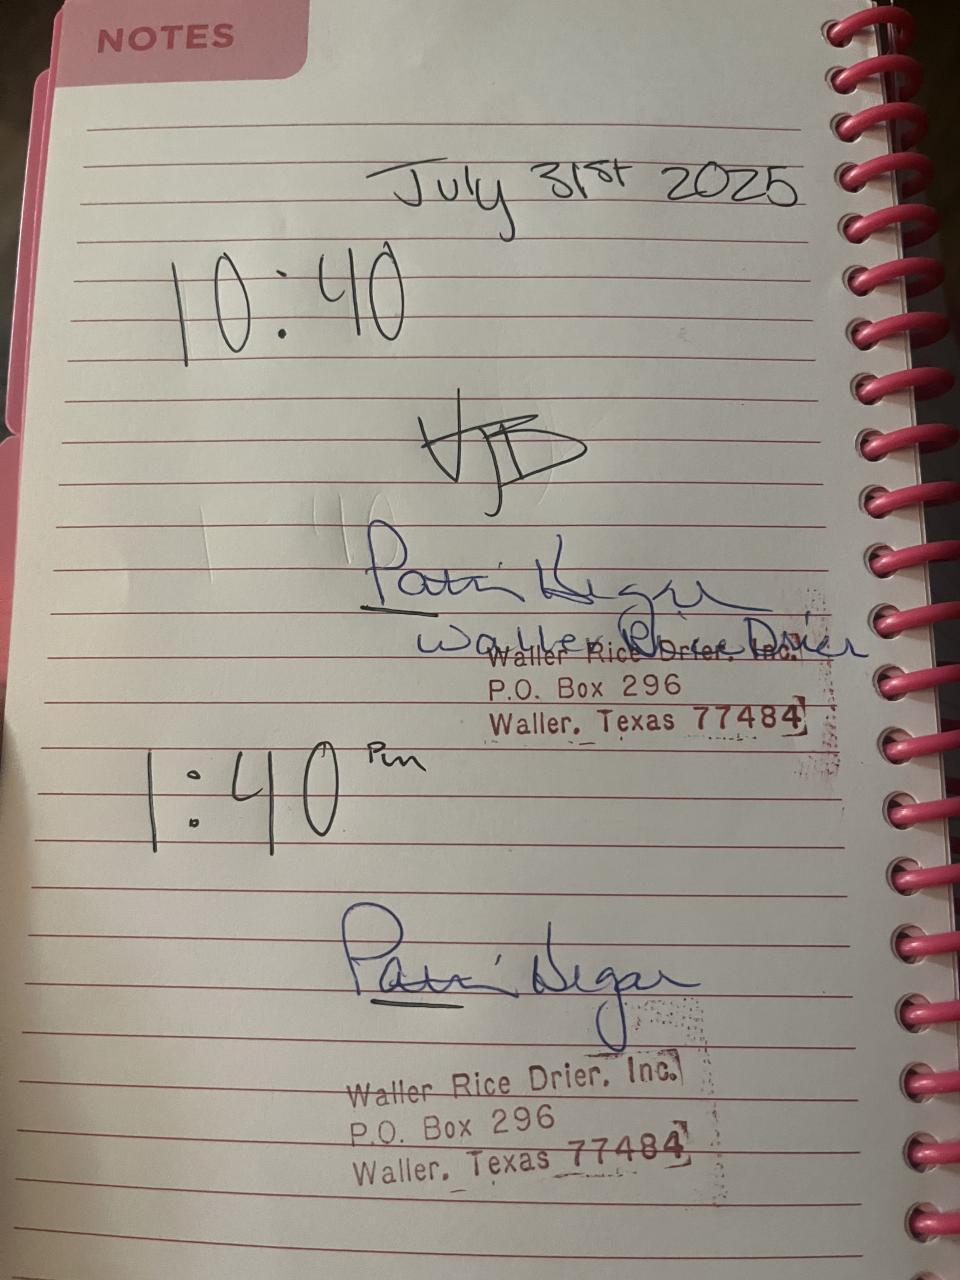 NOTES
July 31st 2025
10:40
Waller Rice Drier
Waller Rice Drier, Inc.
P.O. Box 296
Waller, Texas 77484
1:40 Pm
Waller Rice Drier, Inc.
P.O. Box 296
Waller, Texas 77484